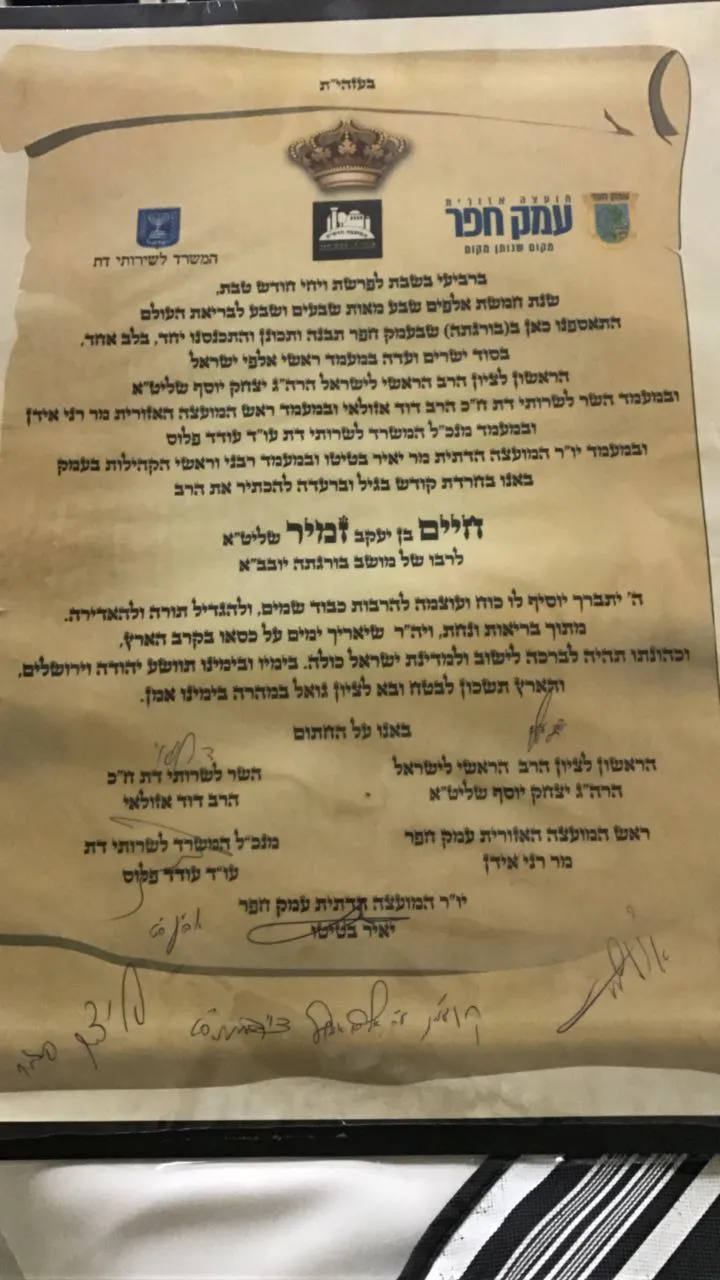 בעזהי"ת
מועצה אזורית
עמק חפר
מקום שנותן מקום
עמק חפר
המשרד לשירותי דת
ברביעי בשבת לפרשת ויחי חודש טבת,
שנת חמשת אלפים שבע מאות שבעים ושבע לבריאת העולם
התאספנו כאן ב(בורגתה) שבעמק חפר תבנה ותכונן והתכנסנו יחד, בלב אחד,
בסוד ישרים ועדה במעמד ראשי אלפי ישראל
הראשון לציון הרב הראשי לישראל הרה"ג יצחק יוסף שליט"א
ובמעמד השר לשרותי דת ח"כ הרב דוד אזולאי ובמעמד ראש המועצה האזורית מר רני אידן
ובמעמד מנכ"ל המשרד לשרותי דת עו"ד עודד פלוס
ובמעמד יו"ר המועצה הדתית מר יאיר בטיטו ובמעמד רבני וראשי הקהילות בעמק
באנו בחרדת קודש בגיל וברעדה להכתיר את הרב
חיים בן יעקב זמיר שליט"א
לרבו של מושב בורגתה יובב"א
ה' יתברך יוסיף לו כוח ועוצמה להרבות כבוד שמים, ולהגדיל תורה ולהאדירה.
מתוך בריאות ונחת, ויה"ר שיאריך ימים על כסאו בקרב הארץ,
וכהונתו תהיה לברכה לישוב ולמדינת ישראל כולה. בימיו ובימינו תוושע יהודה וירושלים,
והארץ תשכון לבטח ובא לציון גואל במהרה בימינו אמן.
באנו על החתום
הראשון לציון הרב הראשי לישראל
הרה"ג יצחק יוסף שליט"א
השר לשרותי דת ח"כ
הרב דוד אזולאי
ראש המועצה האזורית עמק חפר
מר רני אידן
מנכ"ל המשרד לשרותי דת
עו"ד עודד פלוס
יו"ר המועצה הדתית עמק חפר
יאיר בטיטו